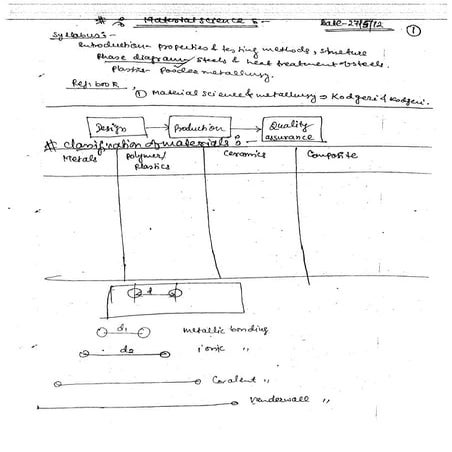 # Material science :- Date - 27/5/12 ①
Syllabus :-
Introduction - properties & testing methods, structure
Phase diagram, steels & heat treatment of steels.
Plastic - Powder metallurgy.
Ref: book
① Material Science & metallurgy → Kodgeri & Kodgeri.
Design → Production → Quality assurance
# Classification of materials :
Metals Polymer/Plastics Ceramics Composite
d
d₁ metallic bonding
d₂ ionic "
Covalent "
Venderwall "